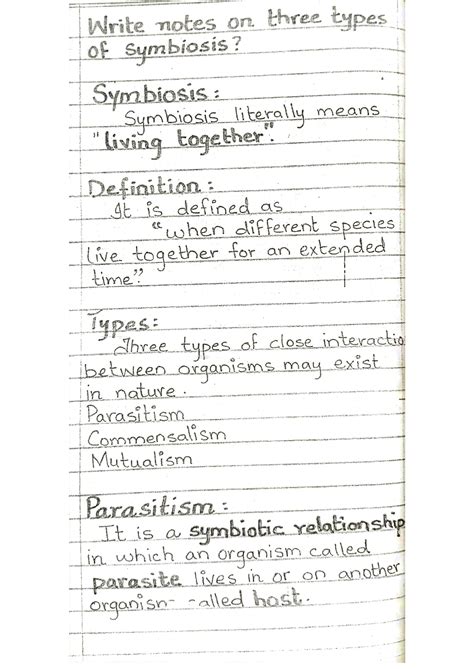 Write notes on three types
of symbiosis?
Symbiosis:
Symbiosis literally means
"living together".
Definition:
It is defined as
"when different species
live together for an extended
time".
Types:
Three types of close interactio
between organisms may exist
in nature.
Parasitism
Commensalism
Mutualism
Parasitism:
It is a symbiotic relationship
in which an organism called
parasite lives in or on another
organisn- -alled host.